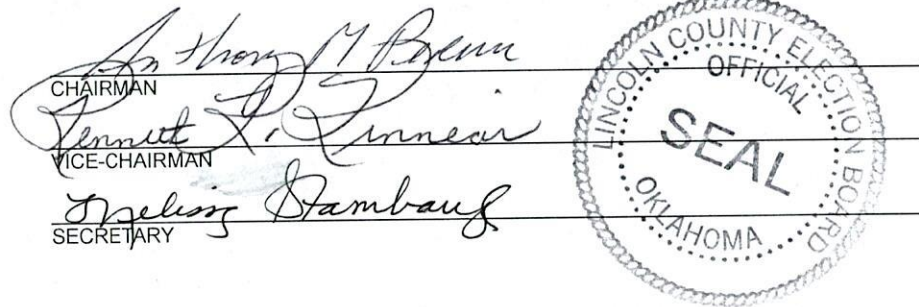 Anthony M
CHAIRMAN
Kenneth L. Kinnear
VICE-CHAIRMAN
Melissa Stambaugh
SECRETARY
LINCOLN COUNTY ELECTION BOARD
OFFICIAL
SEAL
OKLAHOMA